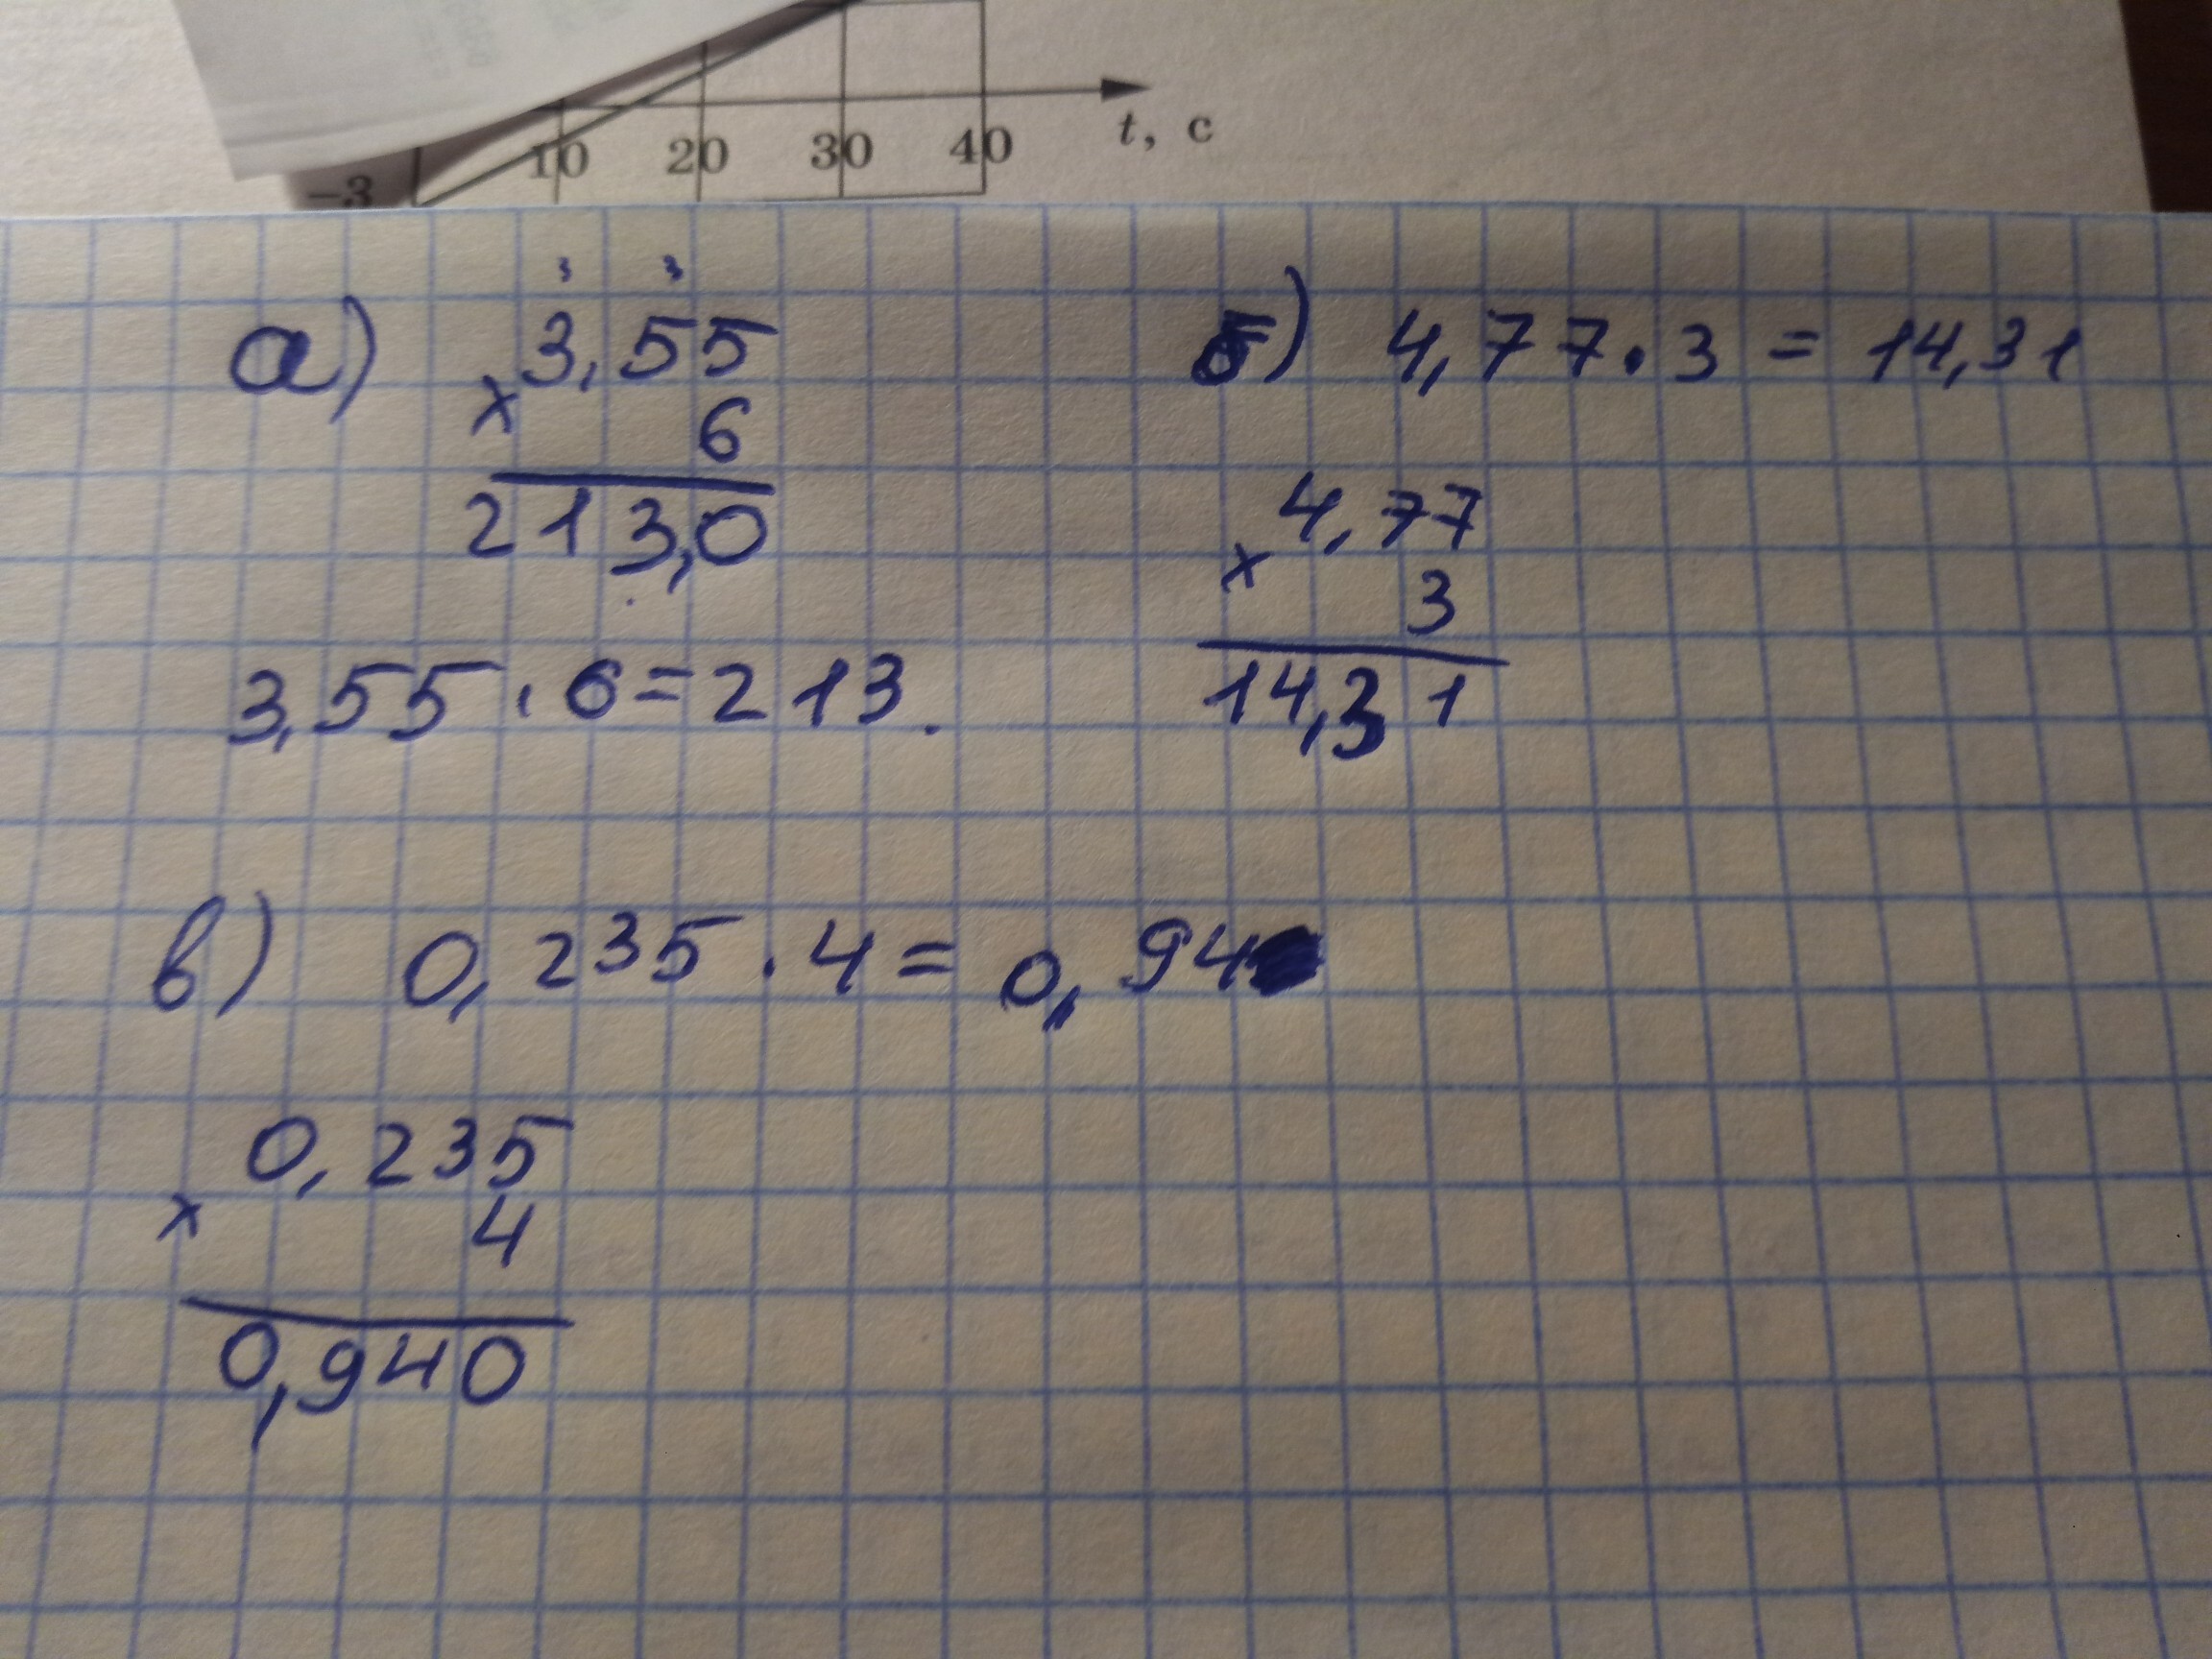 10 20 30 40 t, с
-3
а) 3 3
3,55
× 6
213,0
3,55 · 6 = 213.
б) 4,77 · 3 = 14,31
4,77
× 3
14,31
в) 0,235 · 4 = 0,94
0,235
× 4
0,940